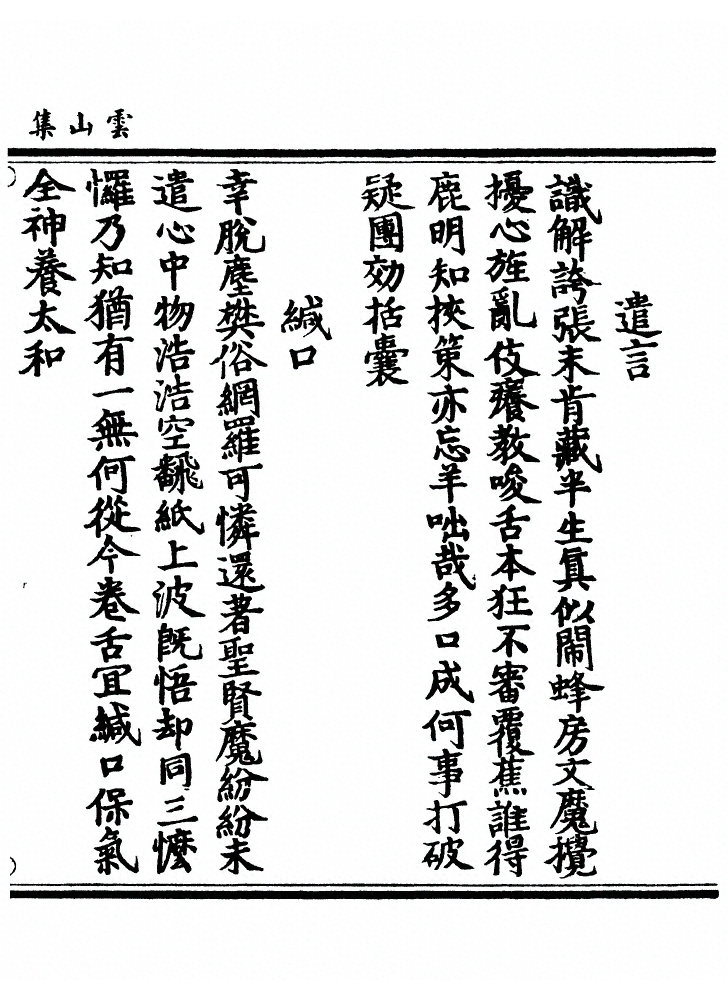 雲山集
遣言
識解誇張未肯藏半生眞似鬧蜂房文魔攪
擾心旌亂伎癢教唆舌本狂不審覆蕉誰得
鹿明知挾策亦忘羊咄哉多口成何事打破
疑團効括囊
緘口
幸脫塵樊俗網羅可憐還著聖賢魔紛紛未
遣心中物浩浩空飜紙上波旣悟却同三懡
㦬乃知猶有一無何從今卷舌宜緘口保氣
全神養太和